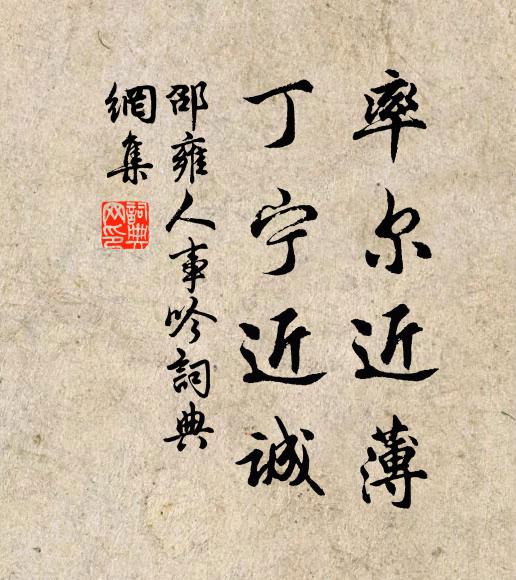 率尔近薄
丁宁近诚
邵雍人事吟詞典
網集
詞典
网印